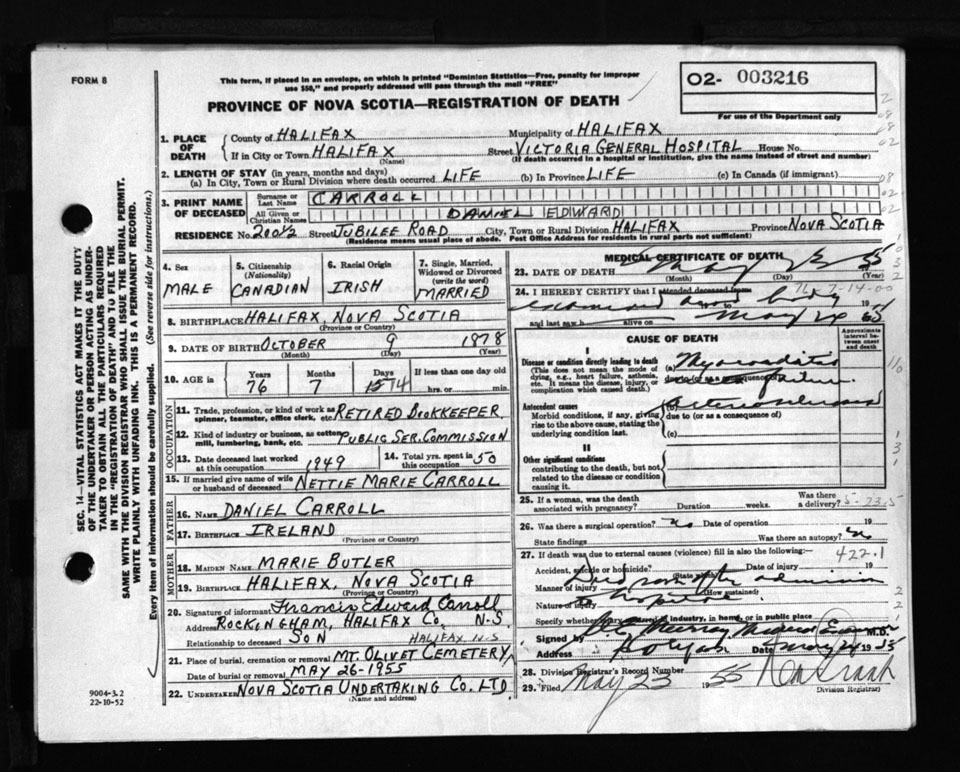 FORM 8
This form, if placed in an envelope, on which is printed "Dominion Statistics—Free, penalty for improper
use $50," and properly addressed will pass through the mail "FREE"
PROVINCE OF NOVA SCOTIA—REGISTRATION OF DEATH
O2- 003216
For use of the Department only
SEC. 14—VITAL STATISTICS ACT MAKES IT THE DUTY
OF THE UNDERTAKER OR PERSON ACTING AS UNDER-
TAKER TO OBTAIN ALL THE PARTICULARS REQUIRED
IN THE "REGISTRATION OF DEATH" AND TO FILE THE
SAME WITH THE DIVISION REGISTRAR WHO SHALL ISSUE THE BURIAL PERMIT.
WRITE PLAINLY WITH UNFADING INK. THIS IS A PERMANENT RECORD.
Every item of information should be carefully supplied. (See reverse side for instructions.)
1. PLACE OF DEATH
County of HALIFAX Municipality of HALIFAX
If in City or Town HALIFAX Street VICTORIA GENERAL HOSPITAL House No.
(Name) (If death occurred in a hospital or institution, give the name instead of street and number)
2. LENGTH OF STAY (in years, months and days)
(a) In City, Town or Rural Division where death occurred LIFE (b) In Province LIFE (c) In Canada (if immigrant)
3. PRINT NAME OF DECEASED
Surname or Last Name CARROLL
All Given or Christian Names DANIEL EDWARD
RESIDENCE No. 200½ Street JUBILEE ROAD City, Town or Rural Division HALIFAX Province NOVA SCOTIA
(Residence means usual place of abode. Post Office Address for residents in rural parts not sufficient)
4. Sex MALE
5. Citizenship (Nationality) CANADIAN
6. Racial Origin IRISH
7. Single, Married, Widowed or Divorced (write the word) MARRIED
8. BIRTHPLACE HALIFAX, NOVA SCOTIA
(Province or Country)
9. DATE OF BIRTH OCTOBER 9 1878
(Month) (Day) (Year)
10. AGE in Years 76 Months 7 Days 15 14 If less than one day hrs. or min.
OCCUPATION
11. Trade, profession, or kind of work as spinner, teamster, office clerk, etc. RETIRED BOOKKEEPER
12. Kind of industry or business, as cotton mill, lumbering, bank, etc. PUBLIC SER. COMMISSION
13. Date deceased last worked at this occupation 1949
14. Total yrs. spent in this occupation 50
15. If married give name of wife or husband of deceased NETTIE MARIE CARROLL
FATHER
16. Name DANIEL CARROLL
17. Birthplace IRELAND
(Province or Country)
MOTHER
18. Maiden Name MARIE BUTLER
19. Birthplace HALIFAX, NOVA SCOTIA
(Province or Country)
20. Signature of informant Francis Edward Carroll
Address ROCKINGHAM, HALIFAX CO., N.S.
Relationship to deceased SON HALIFAX N-S
21. Place of burial, cremation or removal MT. OLIVET CEMETERY,
Date of burial or removal MAY 26-1955
22. UNDERTAKER NOVA SCOTIA UNDERTAKING CO. LTD
(Name and address)
9004-3.2
22-10-52
MEDICAL CERTIFICATE OF DEATH
23. DATE OF DEATH May 55
(Month) (Day) (Year)
24. I HEREBY CERTIFY that I attended deceased from 7-14-00
examined body 19
and last saw h alive on May 24 55
CAUSE OF DEATH
Approximate interval between onset and death
I
Disease or condition directly leading to death
(This does not mean the mode of dying, e.g., heart failure, asthenia, etc. It means the disease, injury, or complication which caused death.)
(a) Myocarditis
due to (or as a consequence of) failure
Antecedent causes
Morbid conditions, if any, giving rise to the above cause, stating the underlying condition last.
(b)
due to (or as a consequence of)
(c)
II
Other significant conditions
contributing to the death, but not related to the disease or condition causing it.
25. If a woman, was the death associated with pregnancy? Duration weeks. Was there a delivery?
26. Was there a surgical operation? No Date of operation 19
State findings Was there an autopsy? No
27. If death was due to external causes (violence) fill in also the following:— 422.1
Accident, suicide or homicide? Date of injury 19
(State which)
Manner of injury Died soon after admission
(How sustained)
Nature of injury to hospital
Specify whether injury occurred in industry, in home, or in public place
Signed by Murray Medical Examiner M.D.
Address Date May 24 1955
28. Division Registrar's Record Number
29. Filed May 25 1955
Division Registrar)